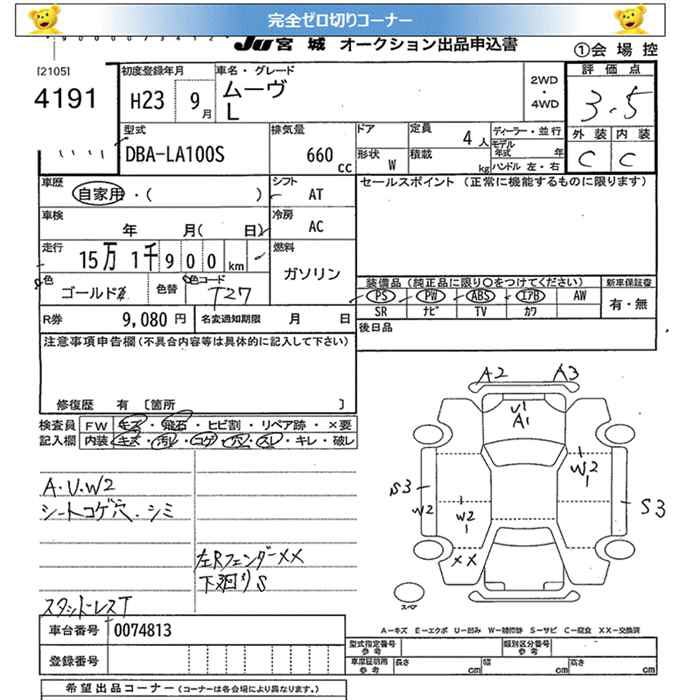 完全ゼロ切りコーナー
JU 宮城 オークション出品申込書
①会場控
[2105]
4191
初度登録年月
H23 9月
車名・グレード
ムーヴ
L
2WD
・
4WD
評価点
3.5
外装 内装
C C
型式
DBA-LA100S
排気量
660 cc
ドア
定員
4人
ディーラー・並行
モデル年式 年
形状
W
積載
kg
ハンドル 左・右
車歴
自家用・( )
シフト
AT
セールスポイント (正常に機能するものに限ります)
車検
年 月( 日)
冷房
AC
走行
15万1千900km
燃料
ガソリン
色
ゴールド
色替
色コード
T27
装備品(純正品に限り○をつけてください)
新車保証書
PS PW ABS エアB AW
有・無
SR ナビ TV カワ
R券 9,080円
名変通知期限 月 日
後日品
注意事項申告欄(不具合内容等は具体的に記入して下さい)
修復歴 有 [箇所 ]
検査員記入欄
FW キズ・飛石・ヒビ割・リペア跡・×要
内装 キズ・汚レ・コゲ・穴・スレ・キレ・破レ
A.U.W2
シートコゲ穴.シミ
左RフェンダーXX
下廻りS
スタッドレスT
A2 A3
U1
A1
W2
S3
W2
W2
S3
XX
スペア
A―キズ E―エクボ U―凹み W―補修跡 S―サビ C―腐食 XX―交換済
車台番号 0074813
登録番号
型式指定番号参考
類別区分番号参考
車庫証明用参考
長さ cm
幅 cm
高さ cm
希望出品コーナー(コーナーは各会場により異なります。)